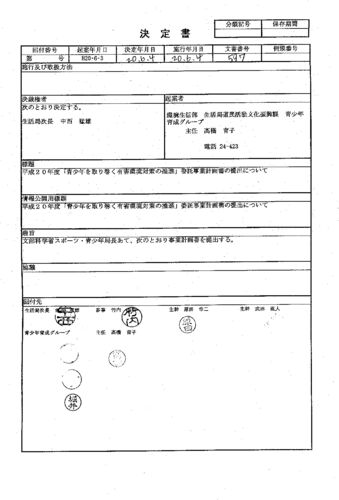 決定書
分類記号 保存期間
回付番号 起案年月日 決定年月日 施行年月日 文書番号 例規番号
第 号 H20-6-3 20.6.4 20.6.4 597
施行及び取扱方法
決裁権者
次のとおり決定する。
生活局次長 中西 猛雄
起案者
環境生活部 生活局道民活動文化振興課 青少年
育成グループ
主任 高橋 育子
電話 24-423
標題
平成20年度「青少年を取り巻く有害環境対策の推進」委託事業計画書の提出について
情報公開用標題
平成20年度「青少年を取り巻く有害環境対策の推進」委託事業計画書の提出について
趣旨
文部科学省スポーツ・青少年局長あて、次のとおり事業計画書を提出する。
回付先
生活局次長 参事 竹内 主幹 主幹
青少年育成グループ 主任 高橋 育子